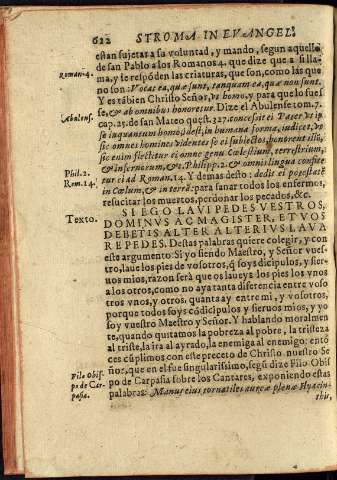 622 STROMA IN EVANGEL.
estan sujetas a su voluntad, y mando, segun aquello
de san Pablo a los Romanos 4. que dize que a si lla-
Roman. 4.
ma, y le respōden las criaturas, que son, como las que
no son: Vocat ea, quæ sunt, tanquam ea, quæ non sunt.
Y es tābien Christo Señor, vt homo, y para que lo fues
se, & ab omnibus honoretur. Dize el Abulense tom. 7.
Abulens.
cap. 25. de san Mateo quest. 327. concessit ei Pater vt ip
se inquantum homo, sedeat, in humana forma, iudicet, vt
sic omnes homines videntes se ei subiectos, honorent illū,
sic enim flectetur ei omne genu Cœlestium, terrestrium,
& infernorum, & c. Philipp. 2. & omnis lingua confite
Phil. 2.
tur ei ad Roman. 14. Y demas desto: dedit ei potestatē
Rom. 14.
in Cœlum, & in terra: para sanar todos los enfermos,
resucitar los muertos, perdonar los pecados, &c.
SI EGO LAVI PEDES VESTROS,
Texto.
DOMINVS AC MAGISTER, ET VOS
DEBETIS ALTER ALTERIVS LAVA
RE PEDES. Destas palabras quiere colegir, y con
este argumento: Si yo siendo Maestro, y Señor vues-
tro, laue los pies de vosotros, q̄ soys dicipulos, y sier-
uos mios, razon será que os laueys los pies los vnos
a los otros, como no aya tanta diferencia entre voso
tros vnos, y otros, quanta ay entre mi, y vosotros,
porque todos soys cōdicipulos y sieruos mios, y yo
soy vuestro Maestro y Señor. Y hablando moralmen
te, quando quitamos la pobreza al pobre, la tristeza
al triste, la ira al ayrado, la enemiga al enemigo: entō
ces cūplimos con este preceto de Christo nuestro Se
ñor, que en el fue singularissimo, segū dize Filo Obis
Filo Obis
po de Carpasia sobre los Cantares, exponiendo estas
po de Car-
pasia.
palabras: Manus eius tornatiles aureæ plenæ Hyacin-
this,